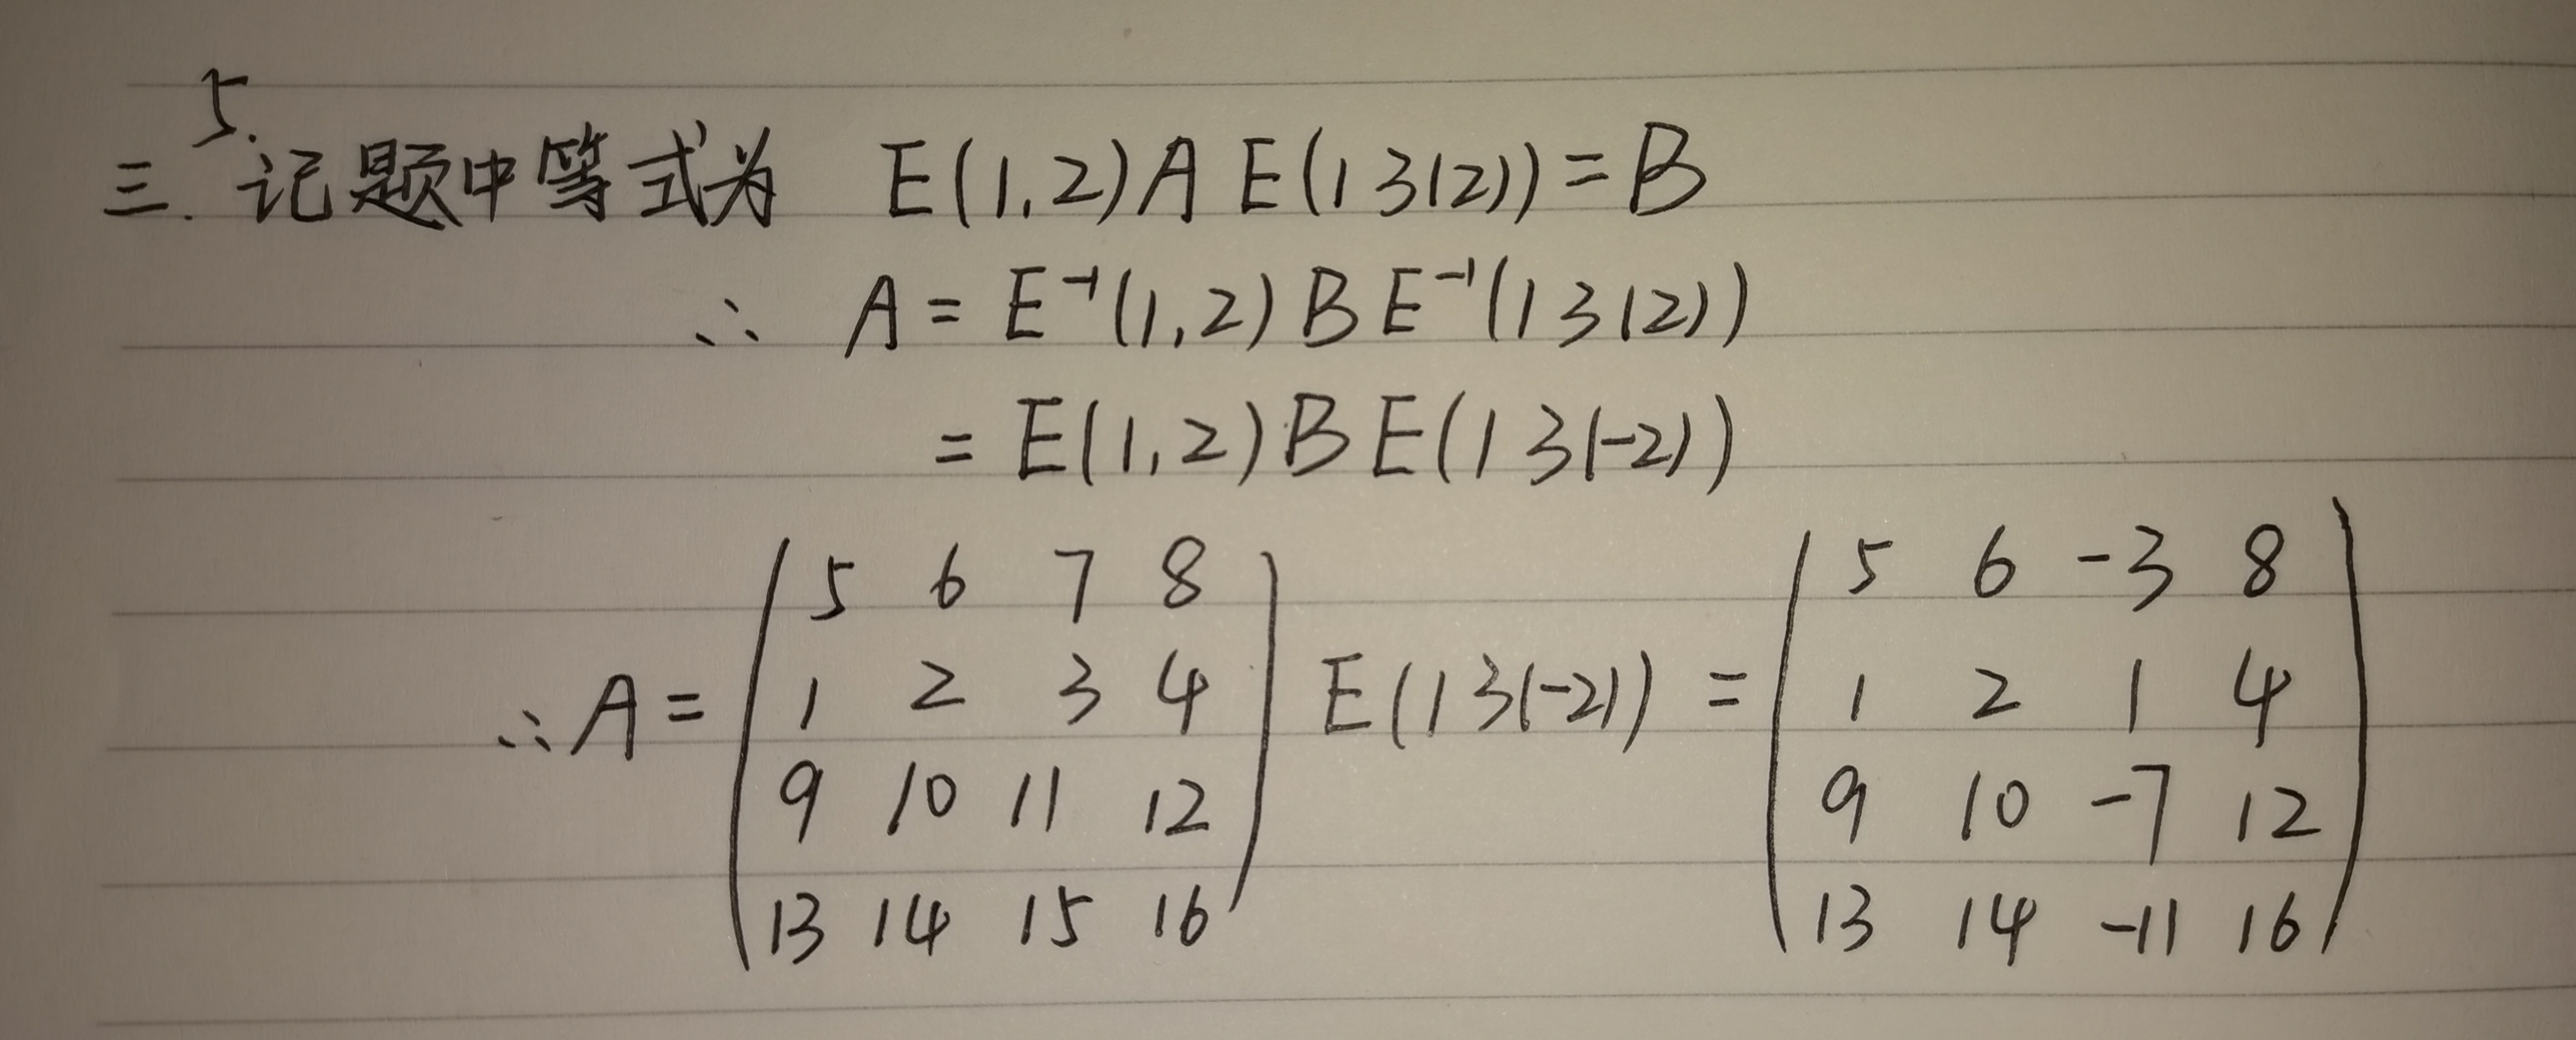 5.
三. 记题中等式为 E(1,2)A E(1 3(2))=B
∴ A = E⁻¹(1,2) B E⁻¹(1 3(2))
= E(1,2) B E(1 3(-2))
∴ A = ( 5 6 7 8 ; 1 2 3 4 ; 9 10 11 12 ; 13 14 15 16 ) E(1 3(-2)) = ( 5 6 -3 8 ; 1 2 1 4 ; 9 10 -7 12 ; 13 14 -11 16 )